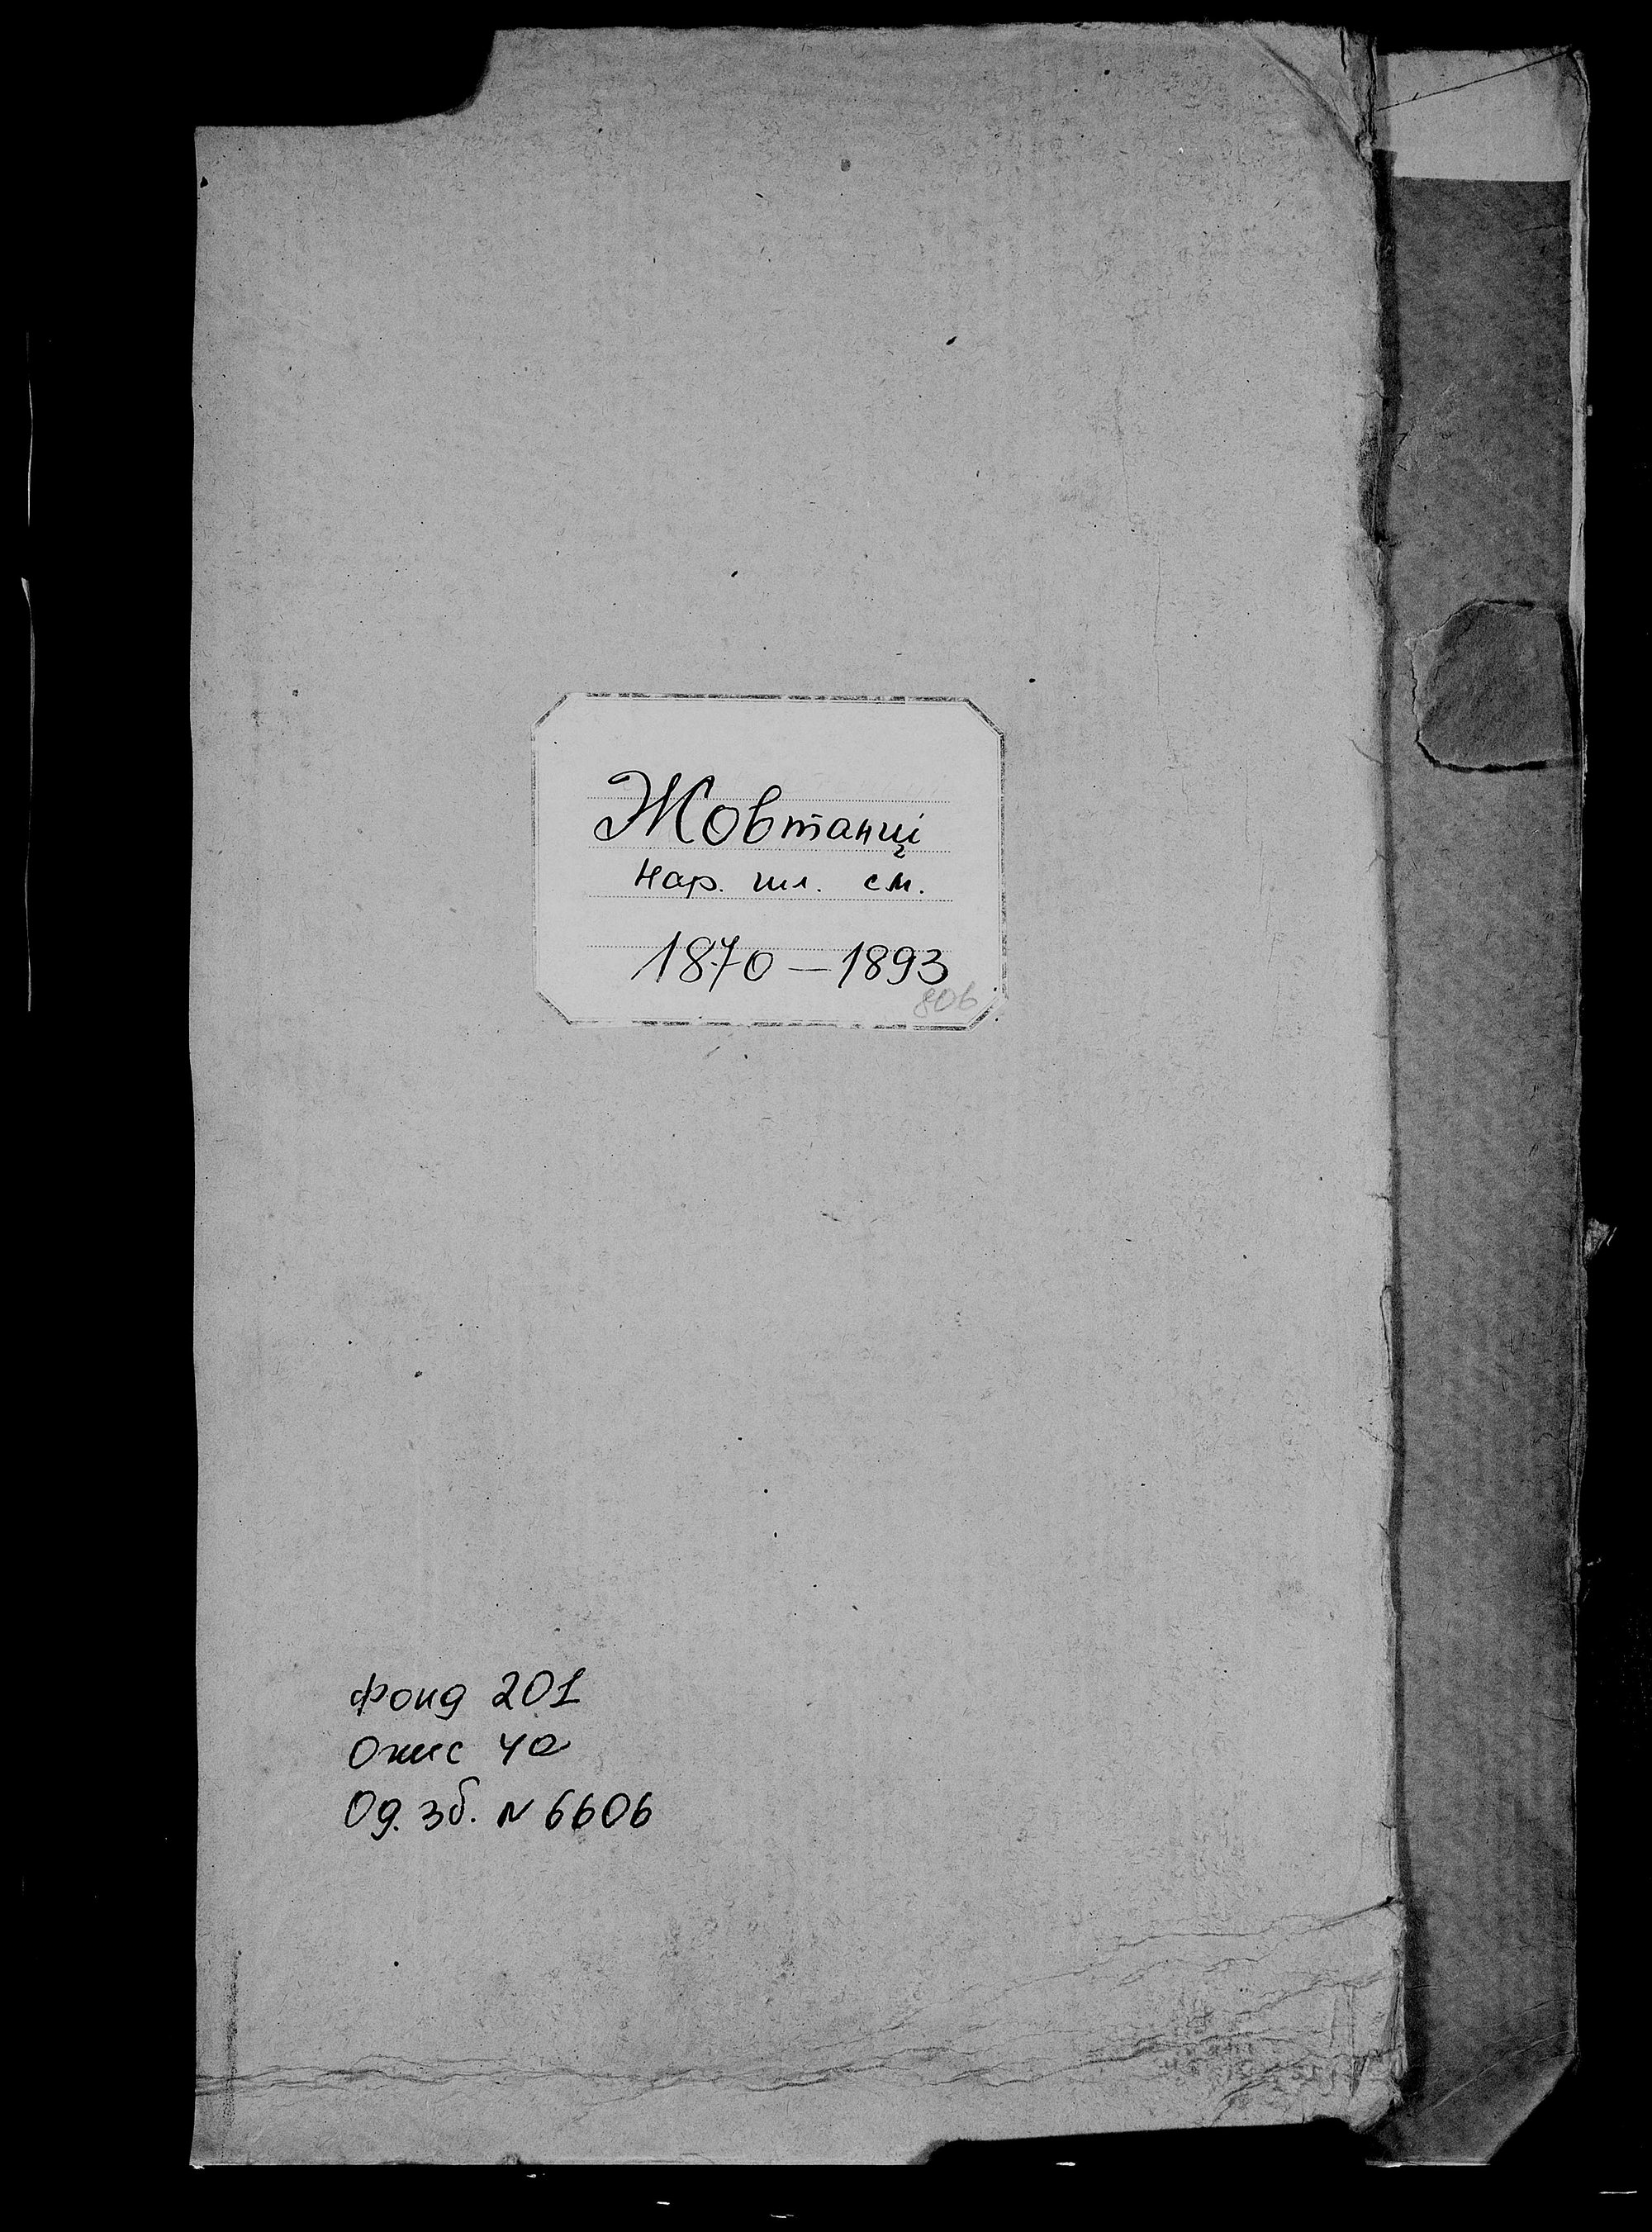 Жовтанці
Нар. шл. см.
1870 – 1893
806
Фонд 201
Опис 4а
Од. зб. N 6606